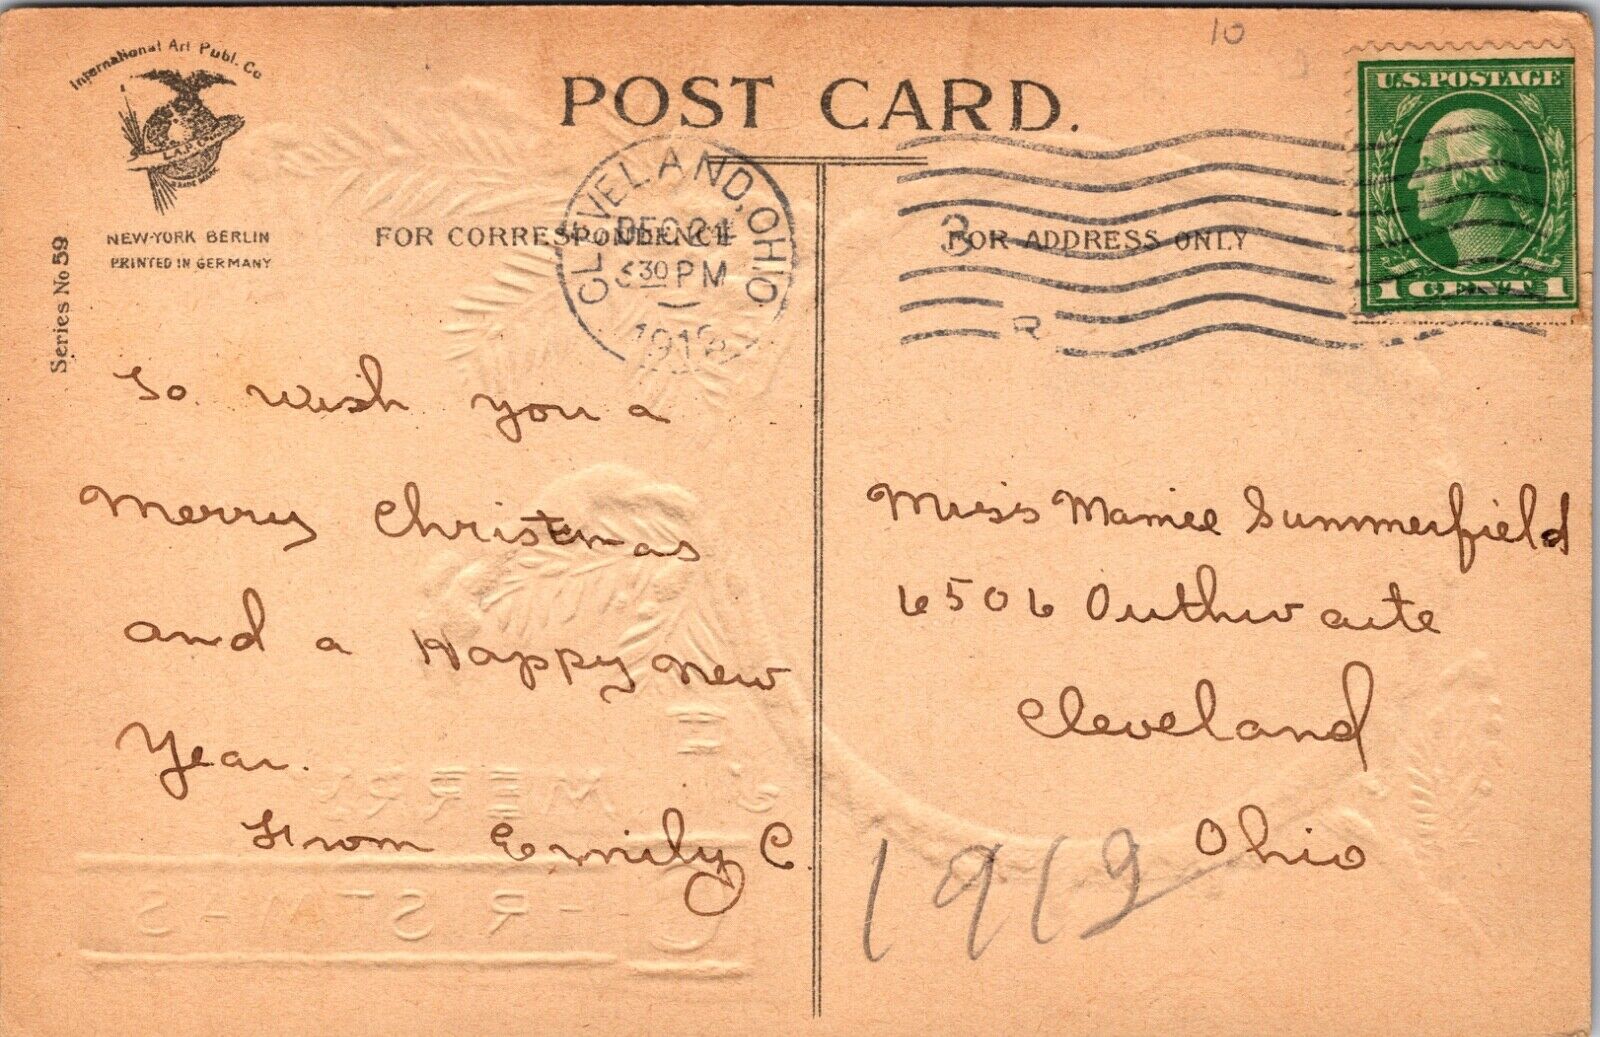 10
International Art Publ. Co
I.A.P. Co.
TRADE MARK
NEW-YORK BERLIN
PRINTED IN GERMANY
Series No 59
POST CARD.
FOR CORRESPONDENCE
FOR ADDRESS ONLY
CLEVELAND, OHIO
DEC 24
330 PM
3
U.S. POSTAGE
1 CENT 1
To wish you a
Merry Christmas
and a Happy New
Year.
From Emily C.
Miss Mamie Summerfield
6506 Outhwaite
Cleveland
Ohio
MERRY